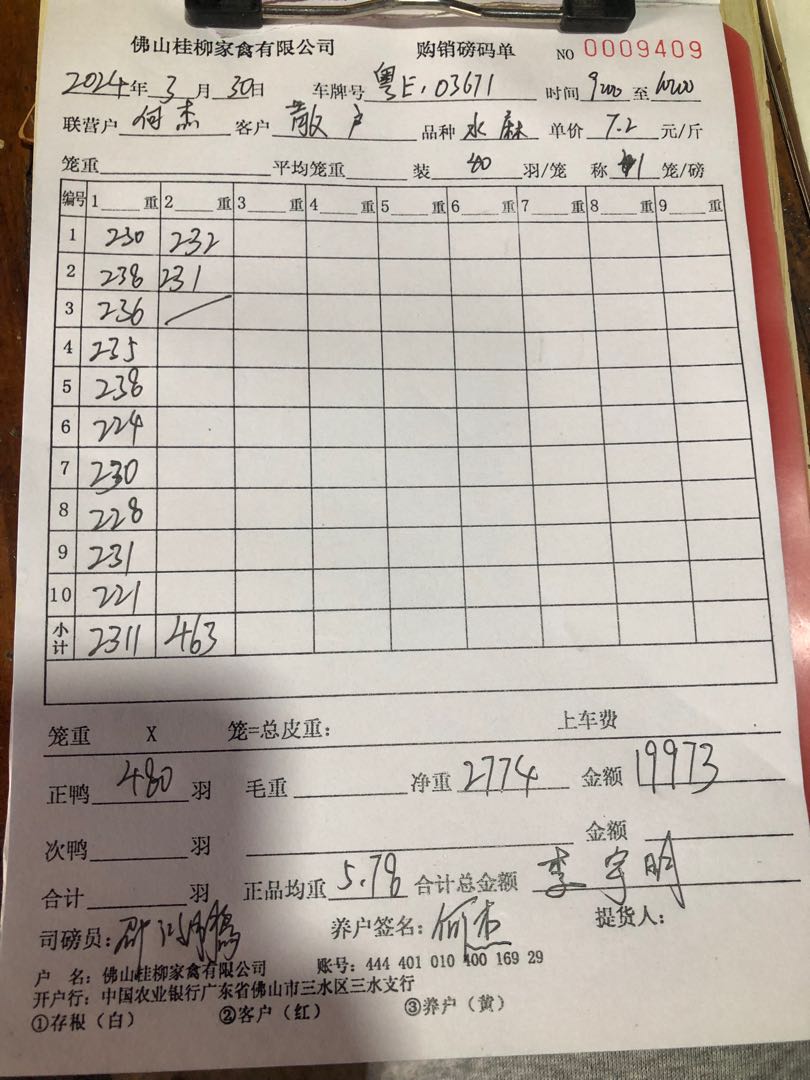 佛山桂柳家禽有限公司 购销磅码单 NO 0009409
2024年 3 月 30日 车牌号 粤E·03671 时间 9:00 至 10:00
联营户 何杰 客户 散户 品种 水麻 单价 7.2 元/斤
笼重 平均笼重 装 40 羽/笼 称 1 笼/磅
编号 1 重 2 重 3 重 4 重 5 重 6 重 7 重 8 重 9 重
1 230 232
2 238 231
3 236 /
4 235
5 238
6 224
7 230
8 228
9 231
10 221
小计 2311 463
笼重 X 笼=总皮重: 上车费
正鸭 480 羽 毛重 净重 2774 金额 19973
次鸭 羽 金额
合计 羽 正品均重 5.78 合计总金额 李宇明
司磅员: 养户签名: 何杰 提货人:
户 名: 佛山桂柳家禽有限公司 账号: 444 401 010 400 169 29
开户行: 中国农业银行广东省佛山市三水区三水支行
①存根(白) ②客户(红) ③养户(黄)